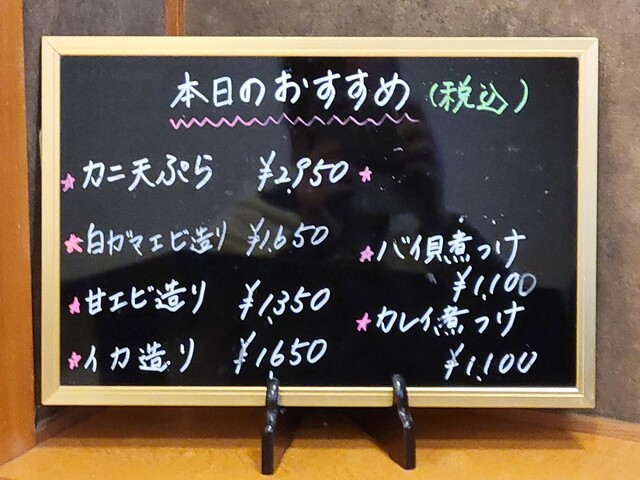 本日のおすすめ (税込)
カニ天ぷら ¥2,950
白ガマエビ造り ¥1,650
甘エビ造り ¥1,350
イカ造り ¥1,650
バイ貝煮つけ
¥1,100
カレイ煮つけ
¥1,100